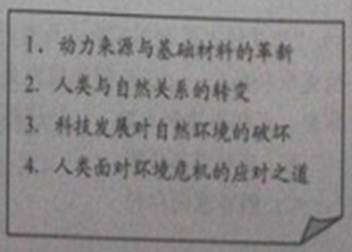 1、动力来源与基础材料的革新
2. 人类与自然关系的转变
3. 科技发展对自然环境的破坏
4. 人类面对环境危机的应对之道